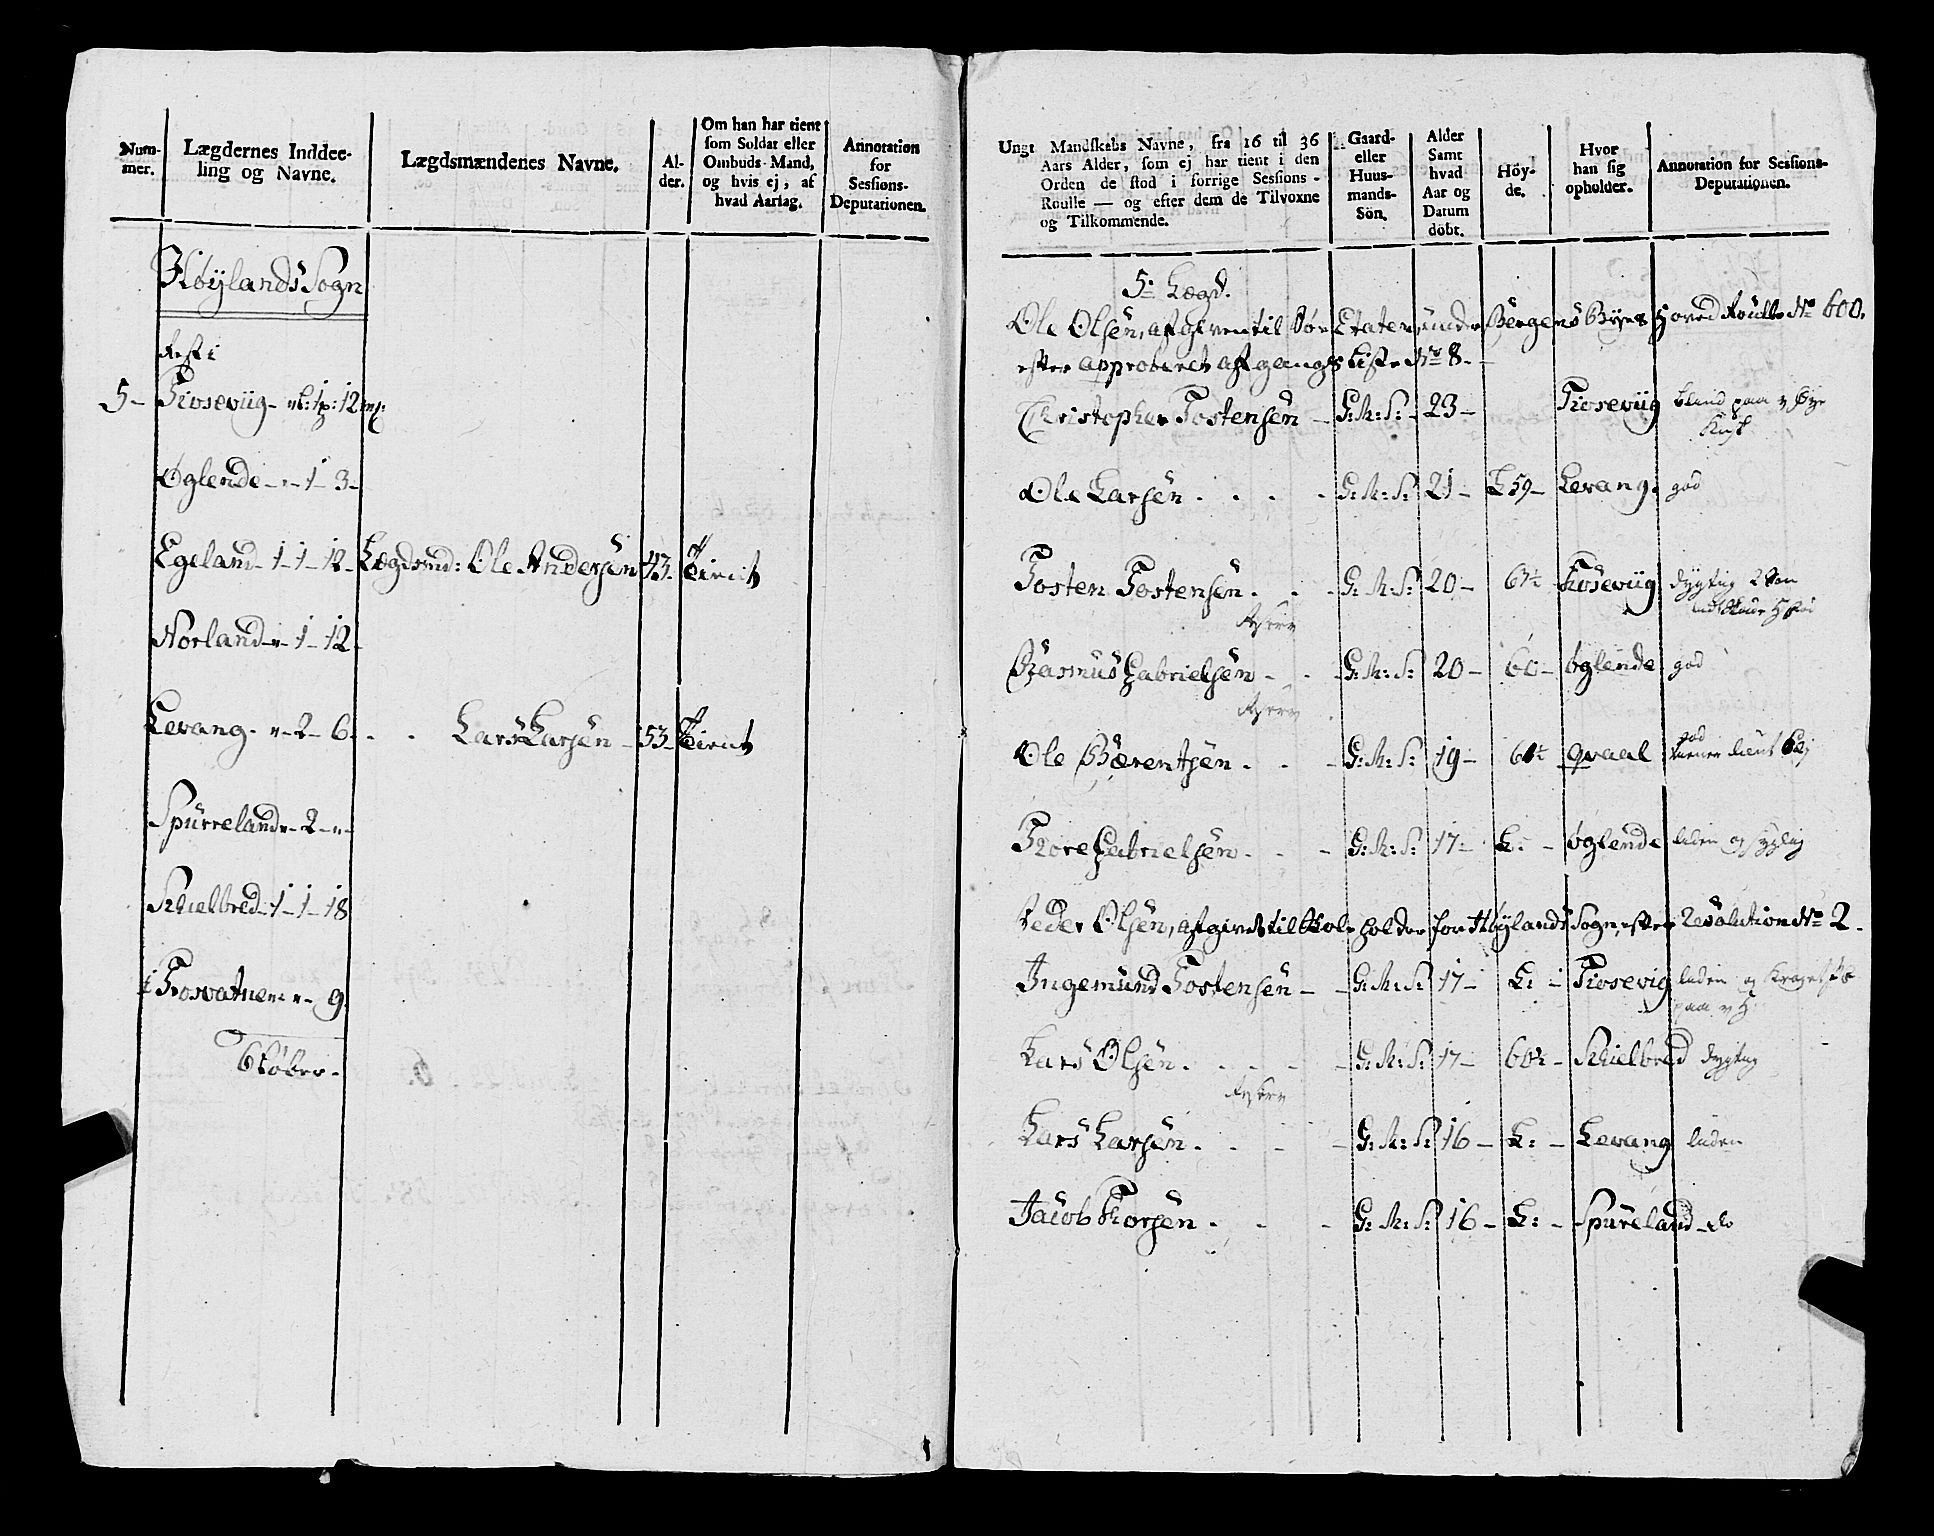 Num-
mer.
Lægdernes Inddee-
ling og Navne.
Lægdsmændenes Navne.
Al-
der.
Om han har tient
som Soldat eller
Ombuds-Mand,
og hvis ej, af
hvad Aarsag.
Annotation
for
Sessions-
Deputationen.
Höylands Sogn
Rest i
5- Tiosevüg - 1 12
Øglende - " - 1 - 3 -
Egeland - 1 - 1 - 12 - Lægdsmd: Ole Andersen 43 - Tient
Norland - " - 1 - 12 -
Levang - " - 2 - 6 - Lars Larsen - 53 - Tient
Spürreland " - 2 - " -
Schielbred - 1 - 1 - 18
i Fosvatnem " - 9
Ungt Mandskabs Navne, fra 16 til 36
Aars Alder, som ej har tient i den
Orden de stod i forrige Sessions-
Roulle — og efter dem de Tilvoxne
og Tilkommende.
Gaard-
eller
Huus-
mands-
Sön.
Alder
Samt
hvad
Aar og
Datum
döbt.
Höy-
de.
Hvor
han sig
opholder.
Annotation for Sessions-
Deputationen.
5te Lægd.
Ole Olsen, afgiven til Söe Etaten, under Bergens Byes Hoved Roulle No 600.
efter approberet afgangs Liste No 8 -
Christopher Tostensen - G: M: S: - 23 - Tiosevüg blind paa v Øye
Ole Larsen - G: M: S: 21 - L 59 - Levang. god
Tosten Tostensen - G: M: S: 20 - Tiosevüg dygtig
Rasmus Gabrielsen - G: M: S: 20 - 60 - øglende god
god
Ole Bærentsen - G: M: S: 19 - Qvaal
Tore Gabrielsen - G: M: S: 17 - L: - øglende liden og
Peder Olsen, afgivet til Skoleholder for Höylands Sogn, efter Resolution No 2 -
Ingemund Tostensen - G: M: S: 17 - L: - Tiosevig liden og
paa v
Lars Olsen - G: M: S: 17 - Schielbred dygtig
Lars Larsen - G: M: S: 16 - L: - Levang liden
Jacob Thorsen - G: M: S: 16 - L: - Spüreland - do